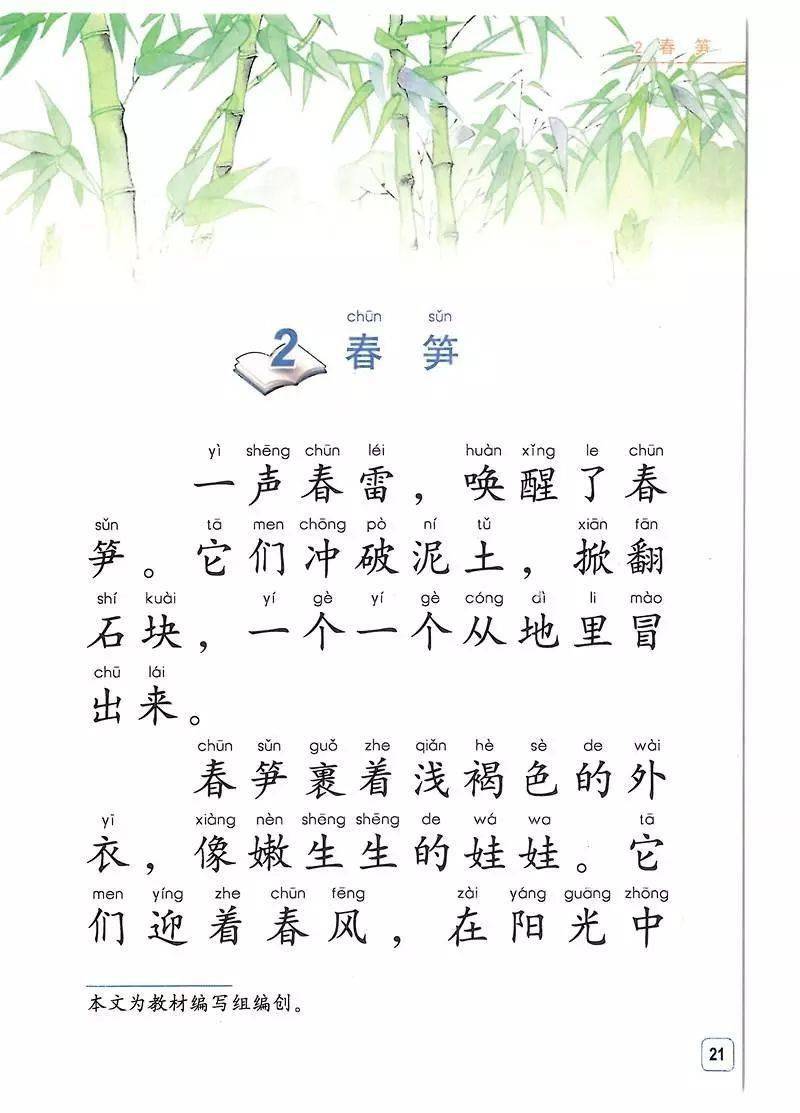 2 春 笋
chūn sǔn
2 春 笋
yì shēng chūn léi huàn xǐng le chūn
一声春雷，唤醒了春
sǔn tā men chōng pò ní tǔ xiān fān
笋。它们冲破泥土，掀翻
shí kuài yí gè yí gè cóng dì li mào
石块，一个一个从地里冒
chū lái
出来。
chūn sǔn guǒ zhe qiǎn hè sè de wài
春笋裹着浅褐色的外
yī xiàng nèn shēng shēng de wá wa tā
衣，像嫩生生的娃娃。它
men yíng zhe chūn fēng zài yáng guāng zhōng
们迎着春风，在阳光中
本文为教材编写组编创。
21